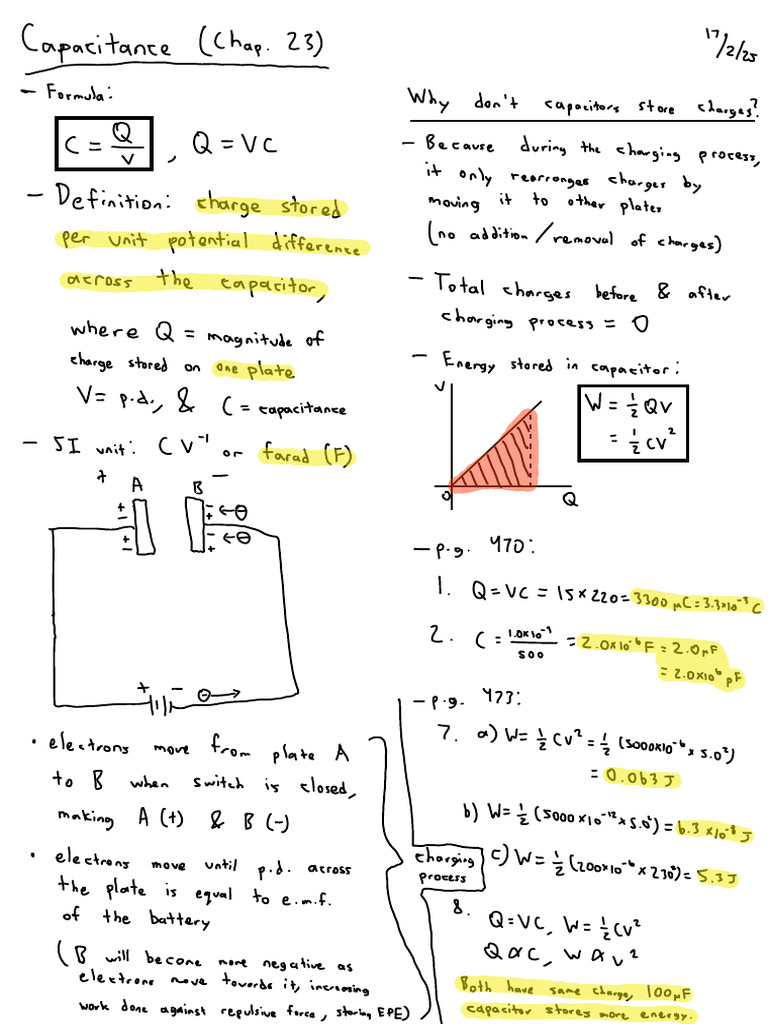 Capacitance (Chap. 23)
17/2/25
- Formula:
C = Q/V , Q = VC
- Definition: charge stored
per unit potential difference
across the capacitor,
where Q = magnitude of
charge stored on one plate
V = p.d., & C = capacitance
- SI unit: C V⁻¹ or farad (F)
+ A B -
+ -
- + ← ⊖
+ -
- + ← ⊖
+ - ⊖ →
• electrons move from plate A
to B when switch is closed,
making A (+) & B (-)
• electrons move until p.d. across
the plate is equal to e.m.f.
of the battery
(B will become more negative as
electrons move towards it, increasing
work done against repulsive force, storing EPE)
charging
process
Why don't capacitors store charges?
- Because during the charging process,
it only rearranges charges by
moving it to other plates
(no addition / removal of charges)
- Total charges before & after
charging process = 0
- Energy stored in capacitor:
V
0 Q
W = ½ QV
= ½ CV²
- p.g. 470:
1. Q = VC = 15 × 220 = 3300 μC = 3.3×10⁻³ C
2. C = 1.0×10⁻³/500 = 2.0×10⁻⁶ F = 2.0 μF
= 2.0×10⁶ pF
- p.g. 473:
7. a) W = ½ CV² = ½ (5000×10⁻⁶ × 5.0²)
= 0.063 J
b) W = ½ (5000×10⁻¹² × 5.0²) = 6.3 × 10⁻⁸ J
c) W = ½ (200×10⁻⁶ × 230²) = 5.3 J
8. Q = VC, W = ½ CV²
Q ∝ C, W ∝ V²
Both have same charge, 100 μF
capacitor stores more energy.